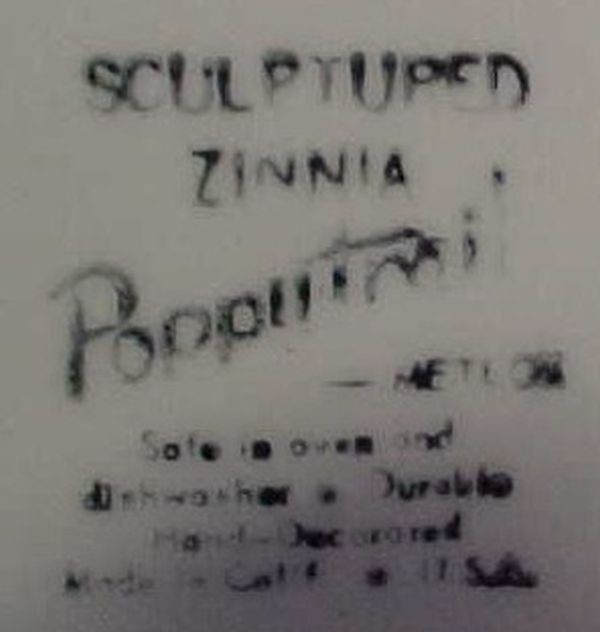 SCULPTURED
ZINNIA
Poppytrail
— METLOX
Safe in oven and
dishwasher • Durable
Hand-Decorated
Made in Calif. • U.S.A.